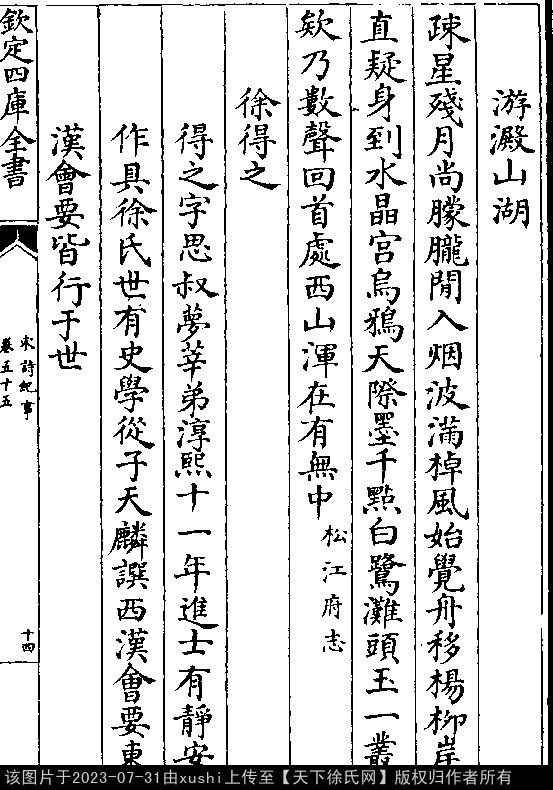 游澱山湖
疎星殘月尚朦朧閒入烟波滿棹風始覺舟移楊柳岸
直疑身到水晶宮烏鴉天際墨千點白鷺灘頭玉一叢
欸乃數聲回首處西山渾在有無中松江府志
徐得之
得之字思叔夢莘弟淳熙十一年進士有靜安
作具徐氏世有史學從子天麟譔西漢會要東
漢會要皆行于世
欽定四庫全書
宋詩紀事
卷五十五
十四
该图片于2023-07-31由xushi上传至【天下徐氏网】版权归作者所有